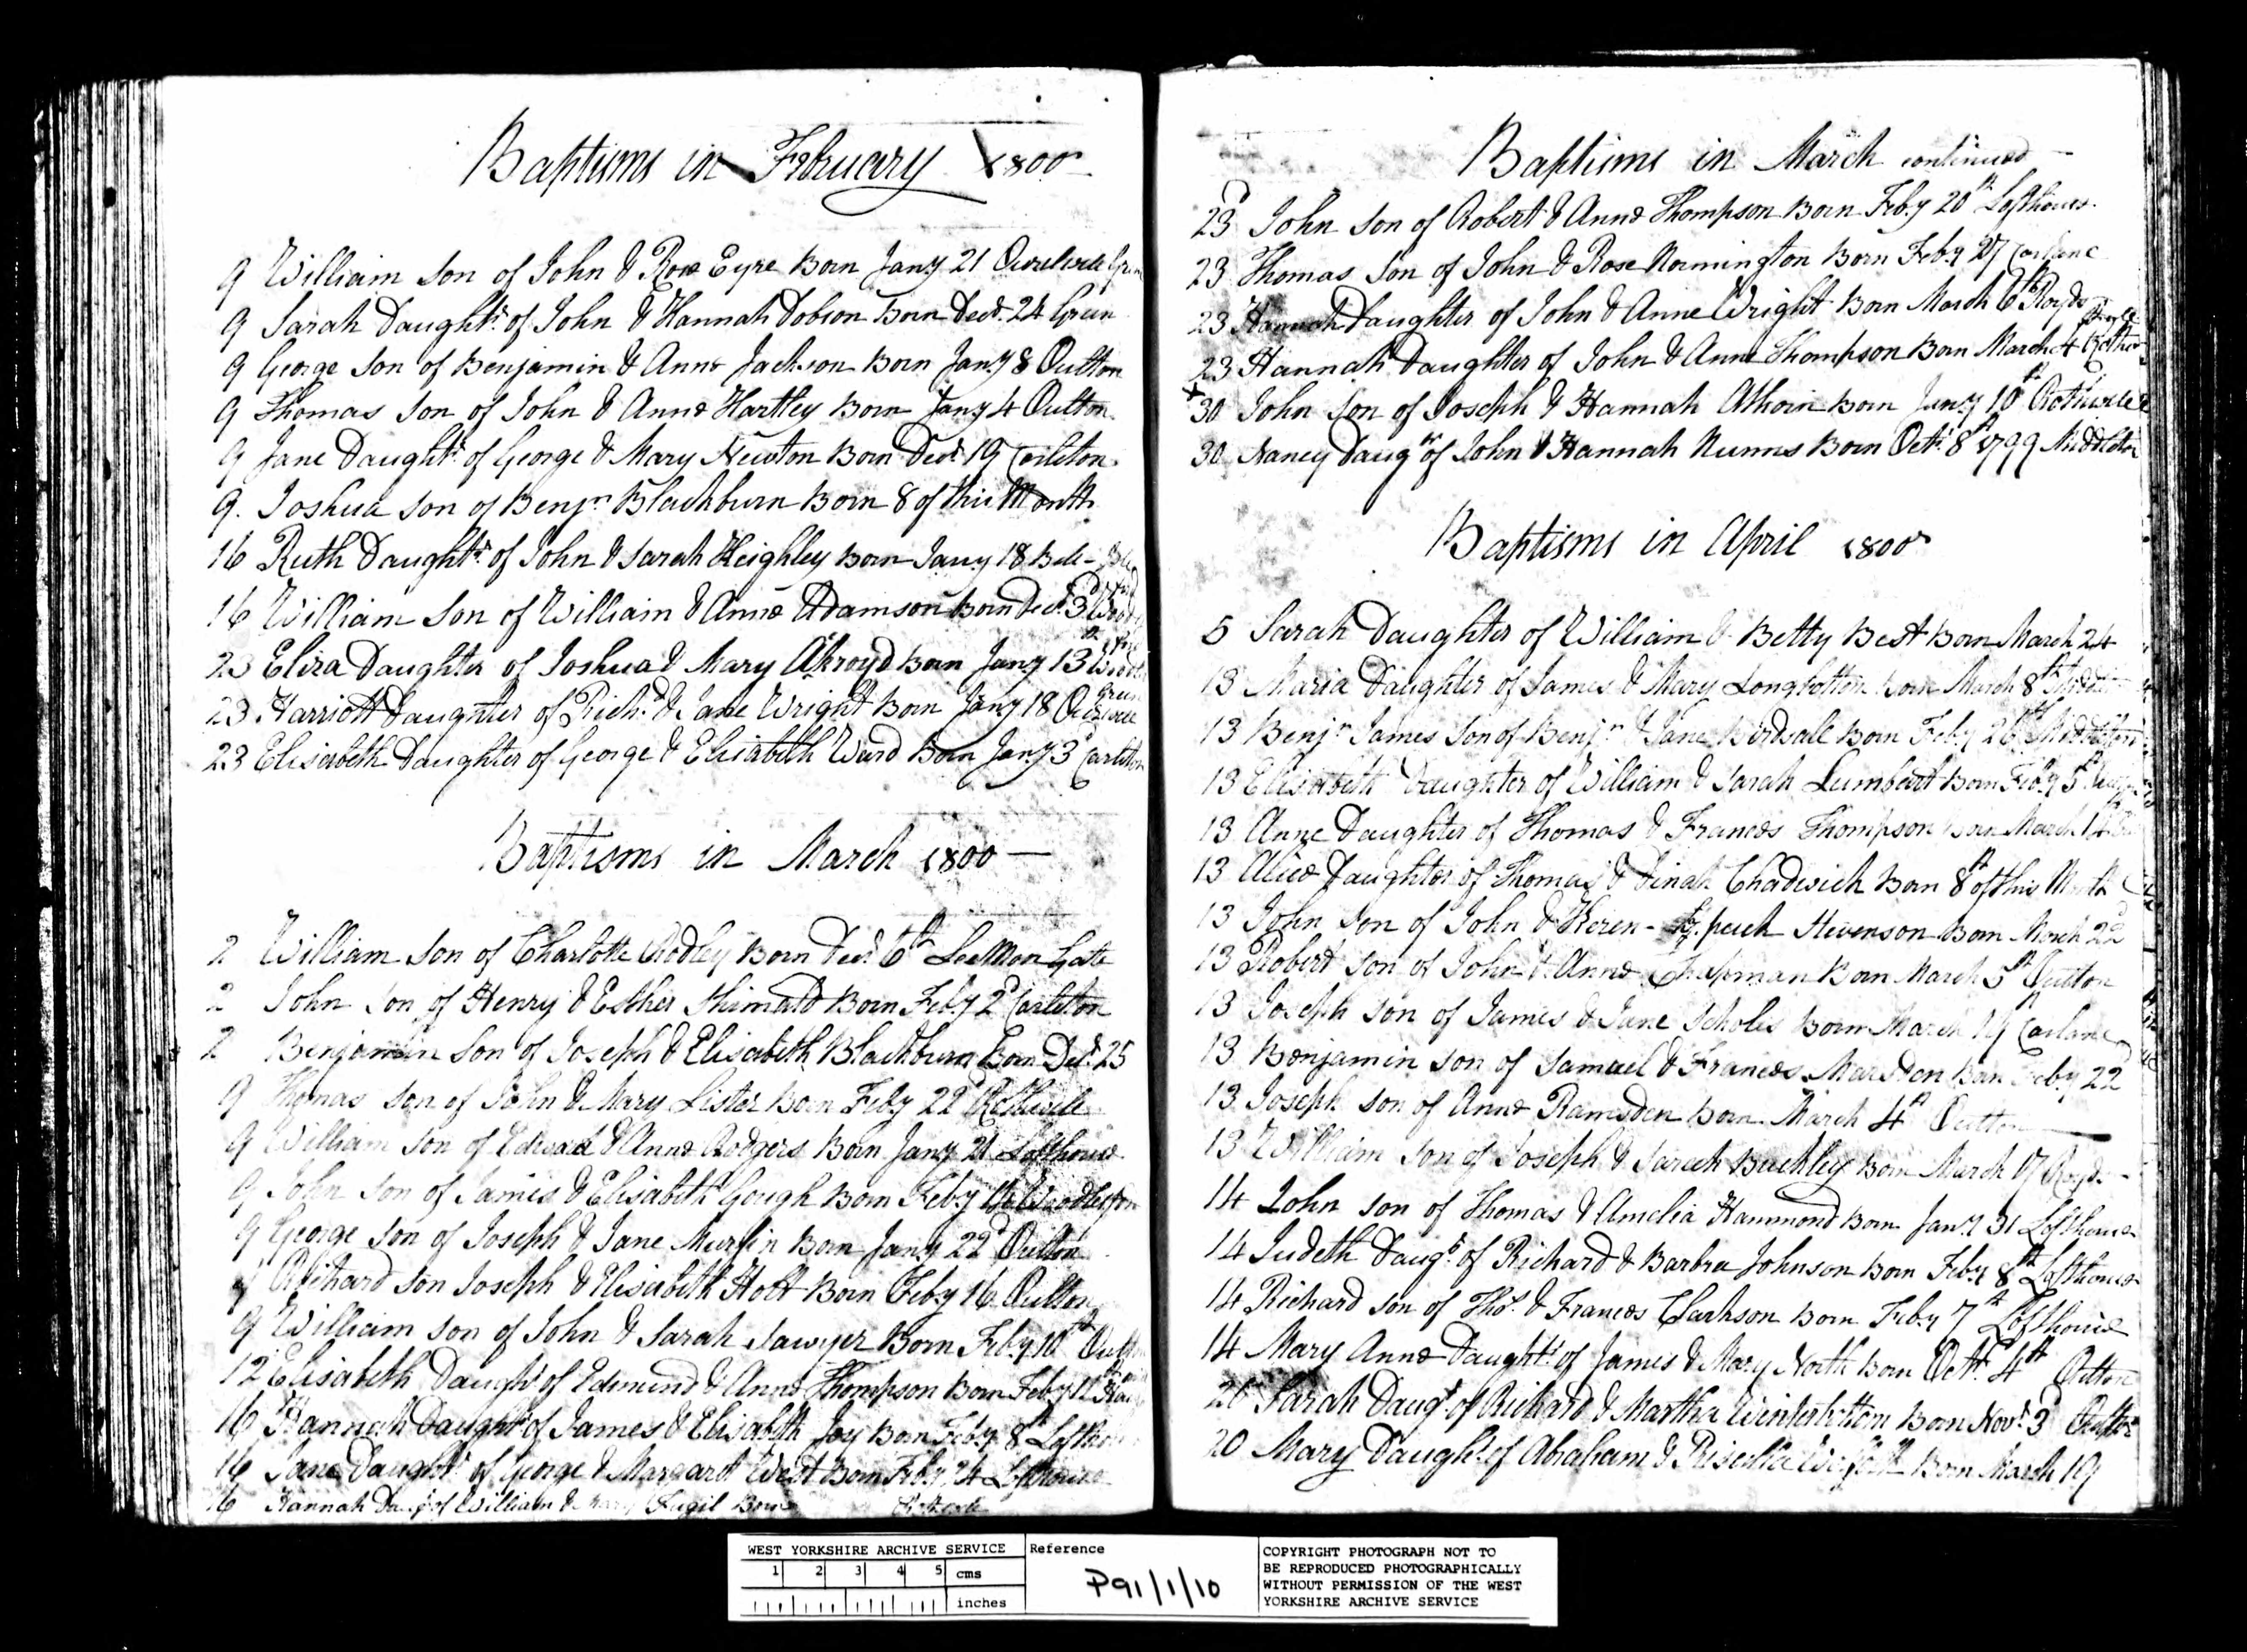 Baptisms in February 1800
9 William Son of John & Rose Eyre Born Jany 21
9 Sarah Daughtr. of John & Hannah Dobson Born Decr. 24 Green
9 George Son of Benjamin & Anne Jackson Born Jany 8 Oulton
9 Thomas Son of John & Anne Hartley Born Jany 4 Oulton
9 Jane Daughtr. of George & Mary Newton Born Decr. 19 Carleton
9. Joshua Son of Benjn Blackburn Born 8 of this Month
16 Ruth Daughtr. of John & Sarah Heighley Born Jany 18
16 William Son of William & Anne Adamson Born Decr. 3d
23 Eliza Daughter of Joshua & Mary Akroyd Born Jany 13th
23 Harriott Daughter of Richd. & Jane Wright Born Jany 18
23 Elisabeth Daughter of George & Elisabeth Ward Born Jany 3d Carleton
Baptisms in March 1800
2 William Son of Charlotte Rodley Born Decr 6th Gate
2 John Son of Henry & Esther Born Feby 2d Carleton
2 Benjamin Son of Joseph & Elisabeth Blackburn Born Decr. 25
9 Thomas Son of John & Mary Lister Born Feby 22 Rothwell
9 William Son of Edward & Anne Rodgers Born Jany 21 Lofthouse
9 John Son of James & Elisabeth Gough Born Feby Woodlesford
9 George Son of Joseph & Jane Murfin Born Jany 22d Oulton
9 Richard Son Joseph & Elisabeth Holt Born Feby 16 Oulton
9 William Son of John & Sarah Sawyer Born Feby 10th
12 Elisabeth Daughr. of Edmund & Anne Thompson Born Feby 11th
16 Hannah Daughr. of James & Elisabeth Joy Born Feby 8th
16 Jane Daughtr. of George & Margaret West Born Feby 24 Lofthouse
16 Hannah Daugr. of William & Mary Fugil Born Rothwell
Baptisms in March continued
23 John Son of Robert & Anne Thompson Born Feby 20th Lofthouse
23 Thomas Son of John & Rose Normington Born Feby 27 Carlane
23 Hannah Daughter of John & Anne Wright Born March 6th Royds
23 Hannah Daughter of John & Anne Thompson Born March 4
30 John Son of Joseph & Hannah Born Jany 10th Rothwell
30 Nancy Daugr of John & Hannah Nunns Born Octr. 8th 1799 Middleton
Baptisms in April 1800
5 Sarah Daughter of William & Betty Best Born March 24
13 Maria Daughter of James & Mary Longbottom Born March 8th
13 Benjn James Son of Benjn & Jane Birdsall Born Feby Middleton
13 Elisabeth Daughter of William & Sarah Lumbart Born Feby 5th
13 Anne Daughter of Thomas & Frances Thompson Born March
13 Alice Daughter of Thomas & Dinah Chadwick Born 8th of this Month
13 John Son of John & Keren- Stevenson Born March 22d
13 Robert Son of John & Anne Chapman Born March 5th Oulton
13 Joseph Son of James & Jane Scholes Born March 19 Carlane
13 Benjamin Son of Samuel & Frances Marsden Born Feby 22d
13 Joseph Son of Anne Ramsden Born March 4th Oulton
13 William Son of Joseph & Sarah Buckley Born March 17 Royds
14 John Son of Thomas & Amelia Hammond Born Jany 31 Lofthouse
14 Judeth Daugr. of Richard & Barbra Johnson Born Feby 8th Lofthouse
14 Richard Son of Thos. & Frances Clarkson Born Feby 7th Lofthouse
14 Mary Anne Daughtr. of James & Mary North Born Octr. 4th Oulton
20 Sarah Daugr. of Richard & Martha Winterbottom Born Novr. 3d Oulton
20 Mary Daughr. of Abraham & Priscilla Born March 19
WEST YORKSHIRE ARCHIVE SERVICE
1 2 3 4 5 cms
inches
Reference
P91/1/10
COPYRIGHT PHOTOGRAPH NOT TO
BE REPRODUCED PHOTOGRAPHICALLY
WITHOUT PERMISSION OF THE WEST
YORKSHIRE ARCHIVE SERVICE